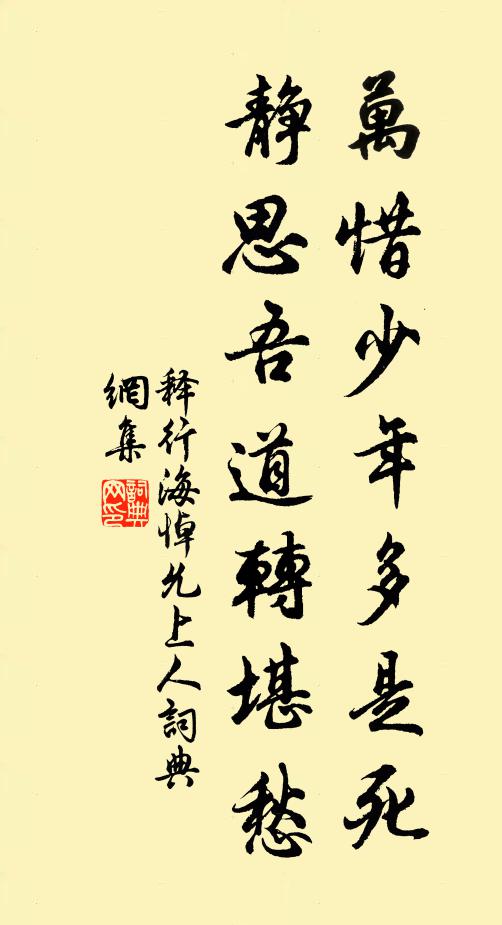 萬惜少年多是死
静思吾道轉堪愁
释行海悼允上人詞典
網集
詞典
网印